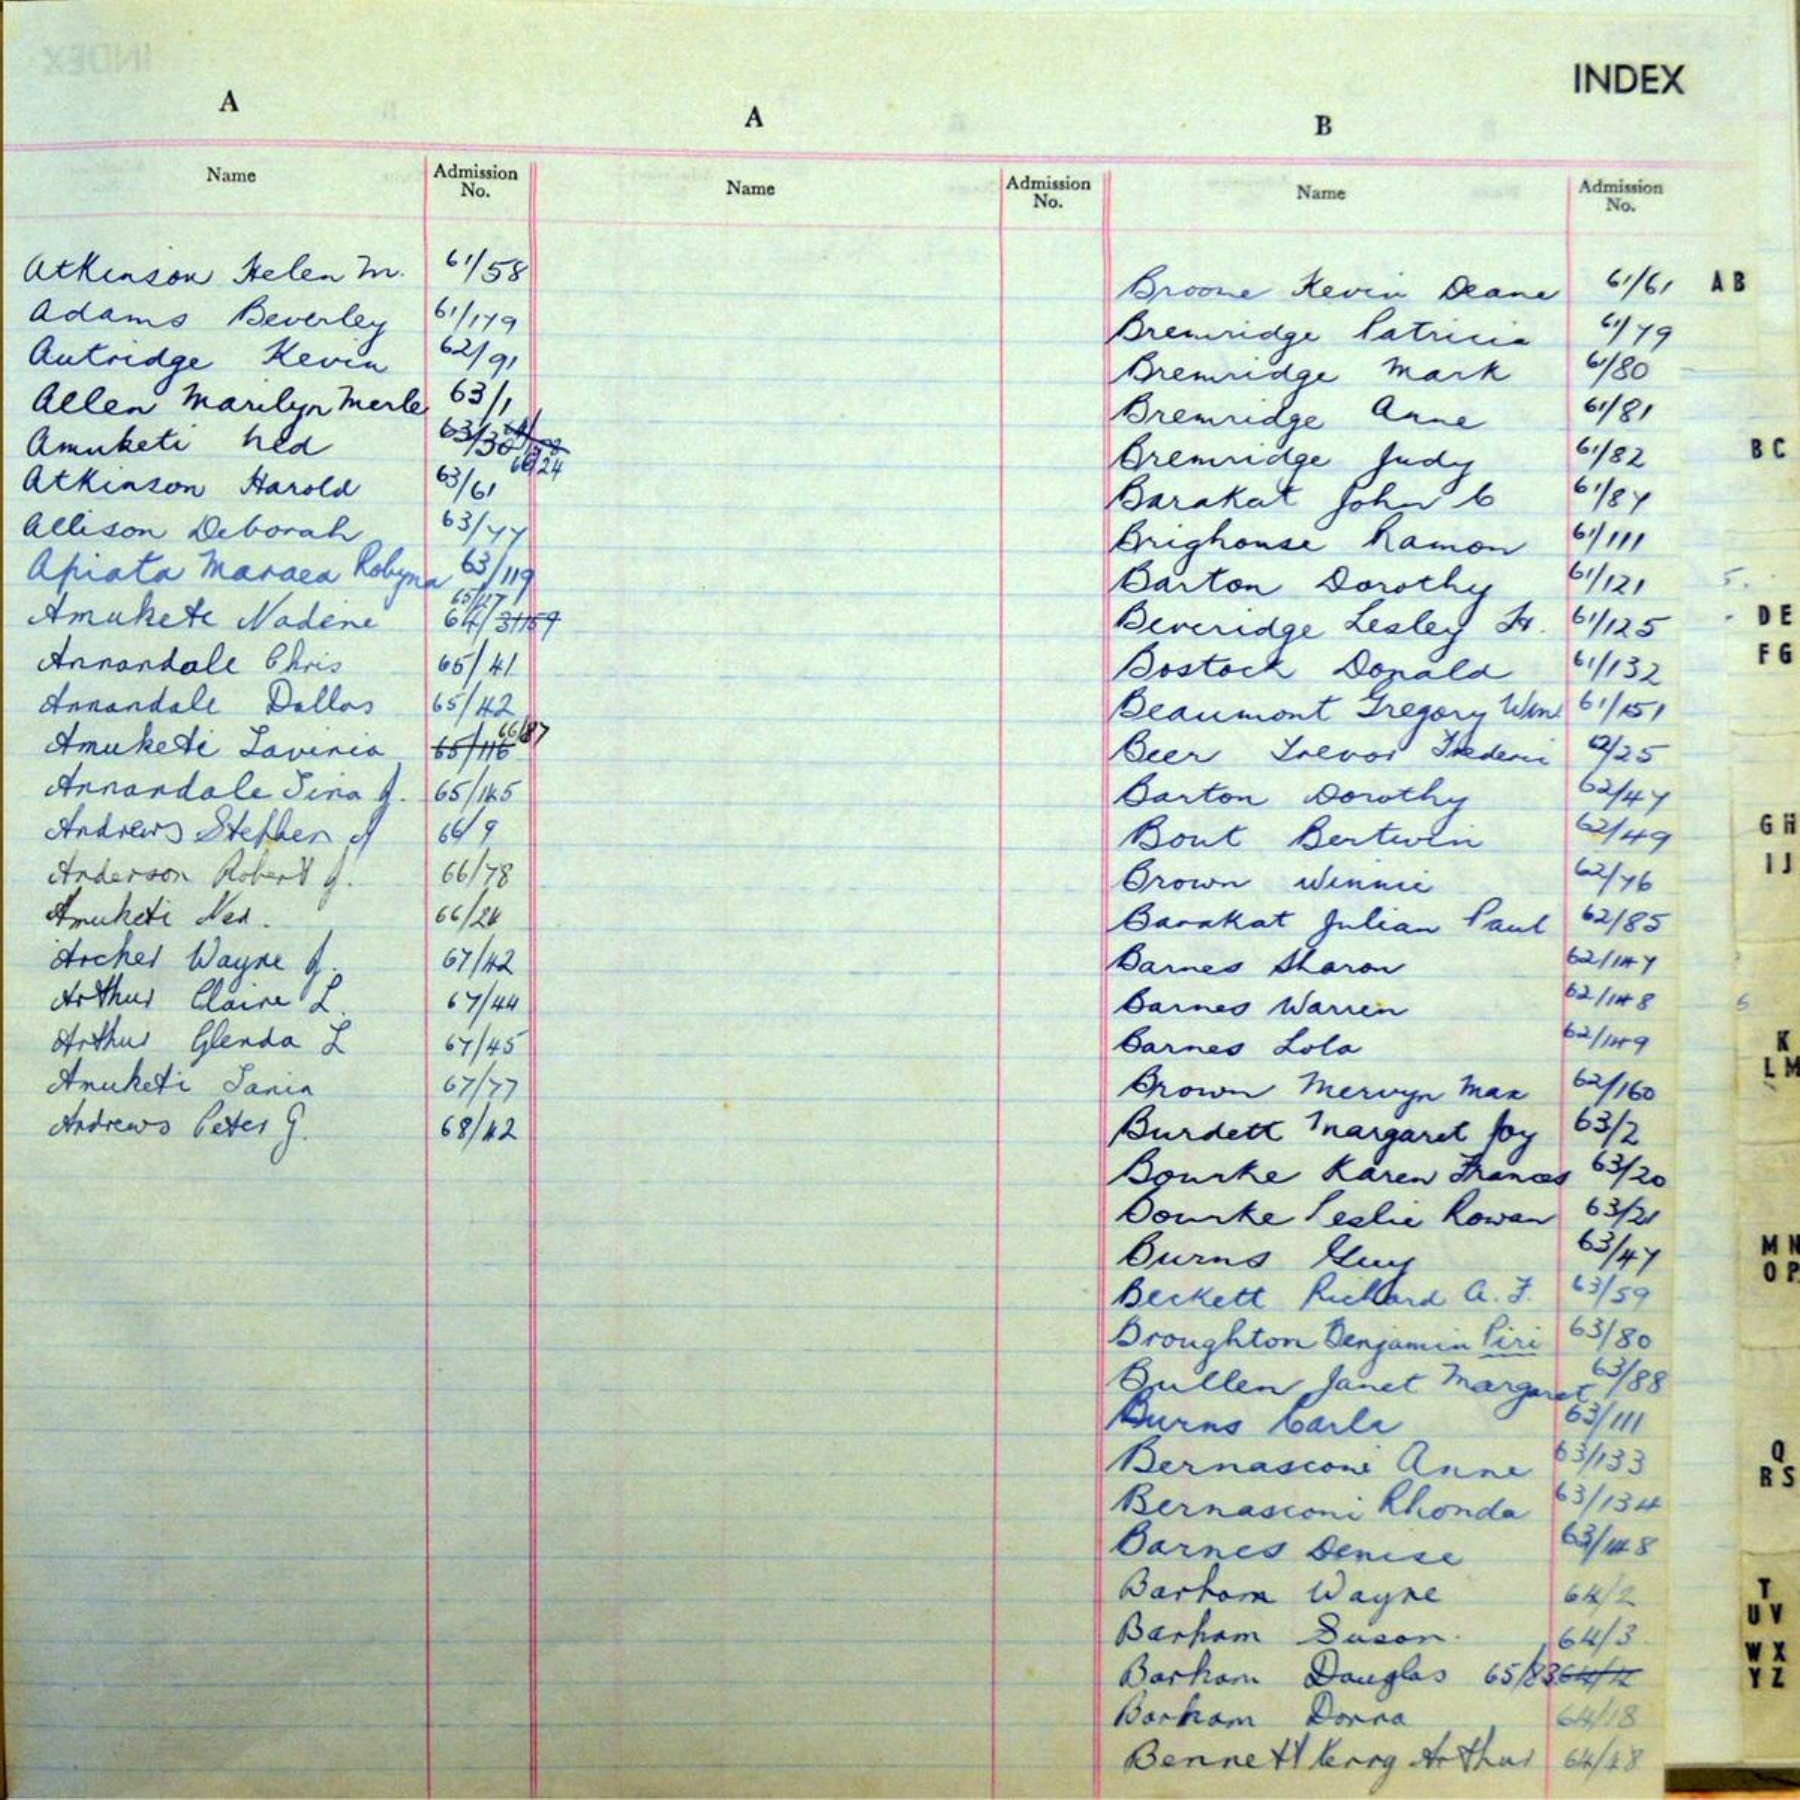 INDEX
A
A
B
Name
Admission No.
Name
Admission No.
Name
Admission No.
Atkinson Helen M. 61/58
Adams Beverley 61/179
Autridge Kevin 62/91
Allen Marilyn Merle 63/1
Amuketi Ned 63/30 66/24
Atkinson Harold 63/61
Allison Deborah 63/77
Apiata Maraea Robyna 63/119
65/117
Amukete Nadene 64/31 159
Annandale Chris 65/41
Annandale Dallas 65/42
Amuketi Lavinia 65/116 66/87
Annandale Tina J. 65/145
Andrews Stephen A 66/9
Anderson Robert J. 66/78
Amuketi Ned. 66/24
Archer Wayne J. 67/42
Arthur Claire L. 67/44
Arthur Glenda L 67/45
Amuketi Tania 67/77
Andrews Peter G. 68/42
Broome Kevin Deane 61/61
Bremridge Patricia 61/79
Bremridge Mark 61/80
Bremridge Anne 61/81
Bremridge Judy 61/82
Barakat John C 61/87
Brighouse Ramon 61/111
Barton Dorothy 61/121
Beveridge Lesley Fr. 61/125
Bostock Donald 61/132
Beaumont Gregory Wm 61/151
Beer Trevor Frederic 62/25
Barton Dorothy 62/47
Bout Bertwin 62/49
Brown Winnie 62/76
Barakat Julian Paul 62/85
Barnes Sharon 62/147
Barnes Warren 62/148
Barnes Lola 62/149
Brown Mervyn Max 62/160
Burdett Margaret Joy 63/2
Bourke Karen Frances 63/20
Bourke Leslie Rowan 63/21
Burns Guy 63/47
Beckett Richard A. F. 63/59
Broughton Benjamin Piri 63/80
Bullen Janet Margaret 63/88
Burns Carla 63/111
Bernasconi Anne 63/133
Bernasconi Rhonda 63/134
Barnes Denise 63/148
Barham Wayne 64/2
Barham Susan. 64/3
Barham Douglas 65/83 64/4
Barham Donna 64/18
Bennett Kerry Arthur 64/48
A B
B C
D E
F G
G H
I J
K
L M
M N
O P
Q
R S
T
U V
W X
Y Z